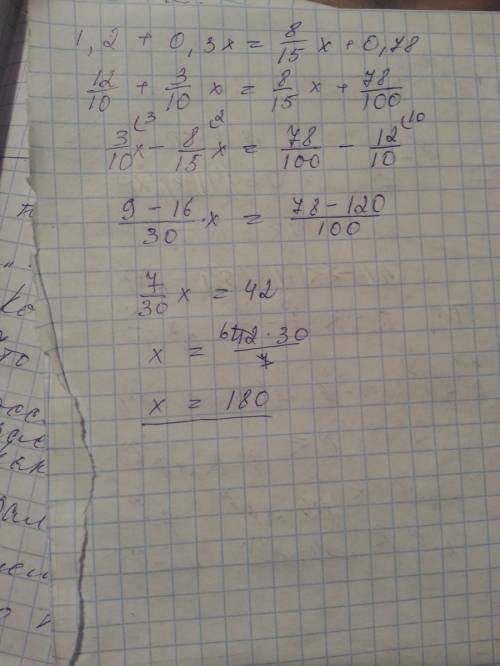 1,2 + 0,3x = 8/15 x + 0,78
12/10 + 3/10 x = 8/15 x + 78/100
3/10 (3 x − 8/15 (2 x = 78/100 − 12/10 (10
9 − 16/30 · x = 78 − 120/100
7/30 x = 42
x = 6 42 · 30/7
x = 180